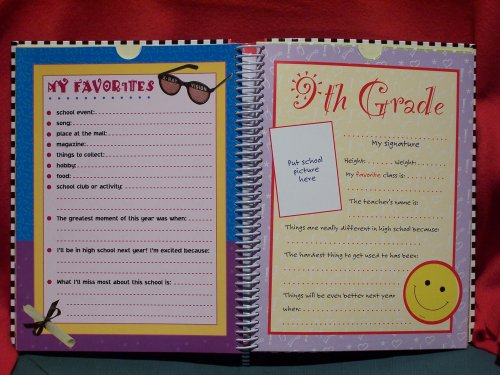 MY FAVORITES
X-RAY VISION
school event:
song:
place at the mall:
magazine:
things to collect:
hobby:
food:
school club or activity:
The greatest moment of this year was when:
I'll be in high school next year! I'm excited because:
What I'll miss most about this school is:
9th Grade
Put school
picture
here
My signature
Height: weight:
My favorite class is:
The teacher's name is:
Things are really different in high school because:
The hardest thing to get used to has been:
Things will be even better next year
when: